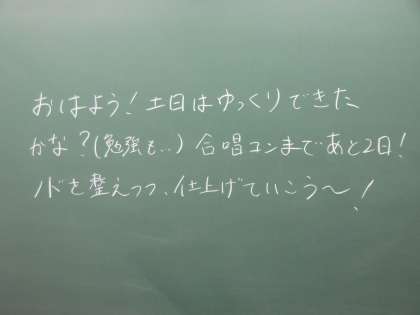 おはよう!土日はゆっくりできた
かな?(勉強も…)合唱コンまであと2日!
ノドを整えつつ、仕上げていこう〜!